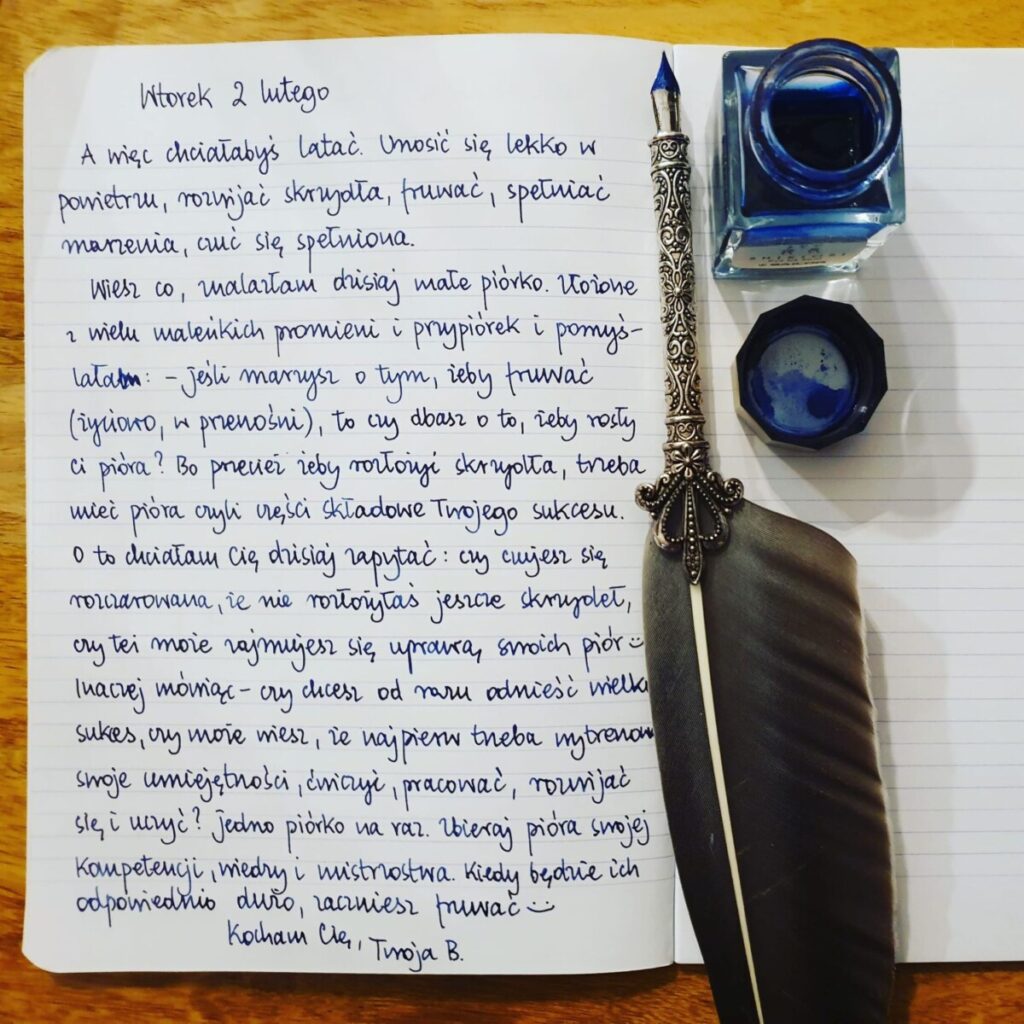 Wtorek 2 lutego
A więc chciałabyś latać. Unosić się lekko w
powietrzu, rozwijać skrzydła, fruwać, spełniać
marzenia, czuć się spełniona.
Wiesz co, znalazłam dzisiaj małe piórko. Złożone
z wielu maleńkich promieni i przypiórek i pomyś-
lałam: - jeśli marzysz o tym, żeby fruwać
(życiowo, w przenośni), to czy dbasz o to, żeby rosły
Ci pióra? Bo przecież żeby rozłożyć skrzydła, trzeba
mieć pióra czyli części składowe Twojego sukcesu.
O to chciałam Cię dzisiaj zapytać: czy czujesz się
rozczarowana, że nie rozłożyłaś jeszcze skrzydeł,
czy też może zajmujesz się uprawą swoich piór☺
Inaczej mówiąc - czy chcesz od razu odnieść wielki
sukces, czy może wiesz, że najpierw trzeba
swoje umiejętności, ćwiczyć, pracować, rozwijać
się i uczyć? Jedno piórko na raz. Zbieraj pióra swojej
kompetencji, wiedzy i mistrzostwa. Kiedy będzie ich
odpowiednio dużo, zaczniesz fruwać☺
Kocham Cię, Twoja B.